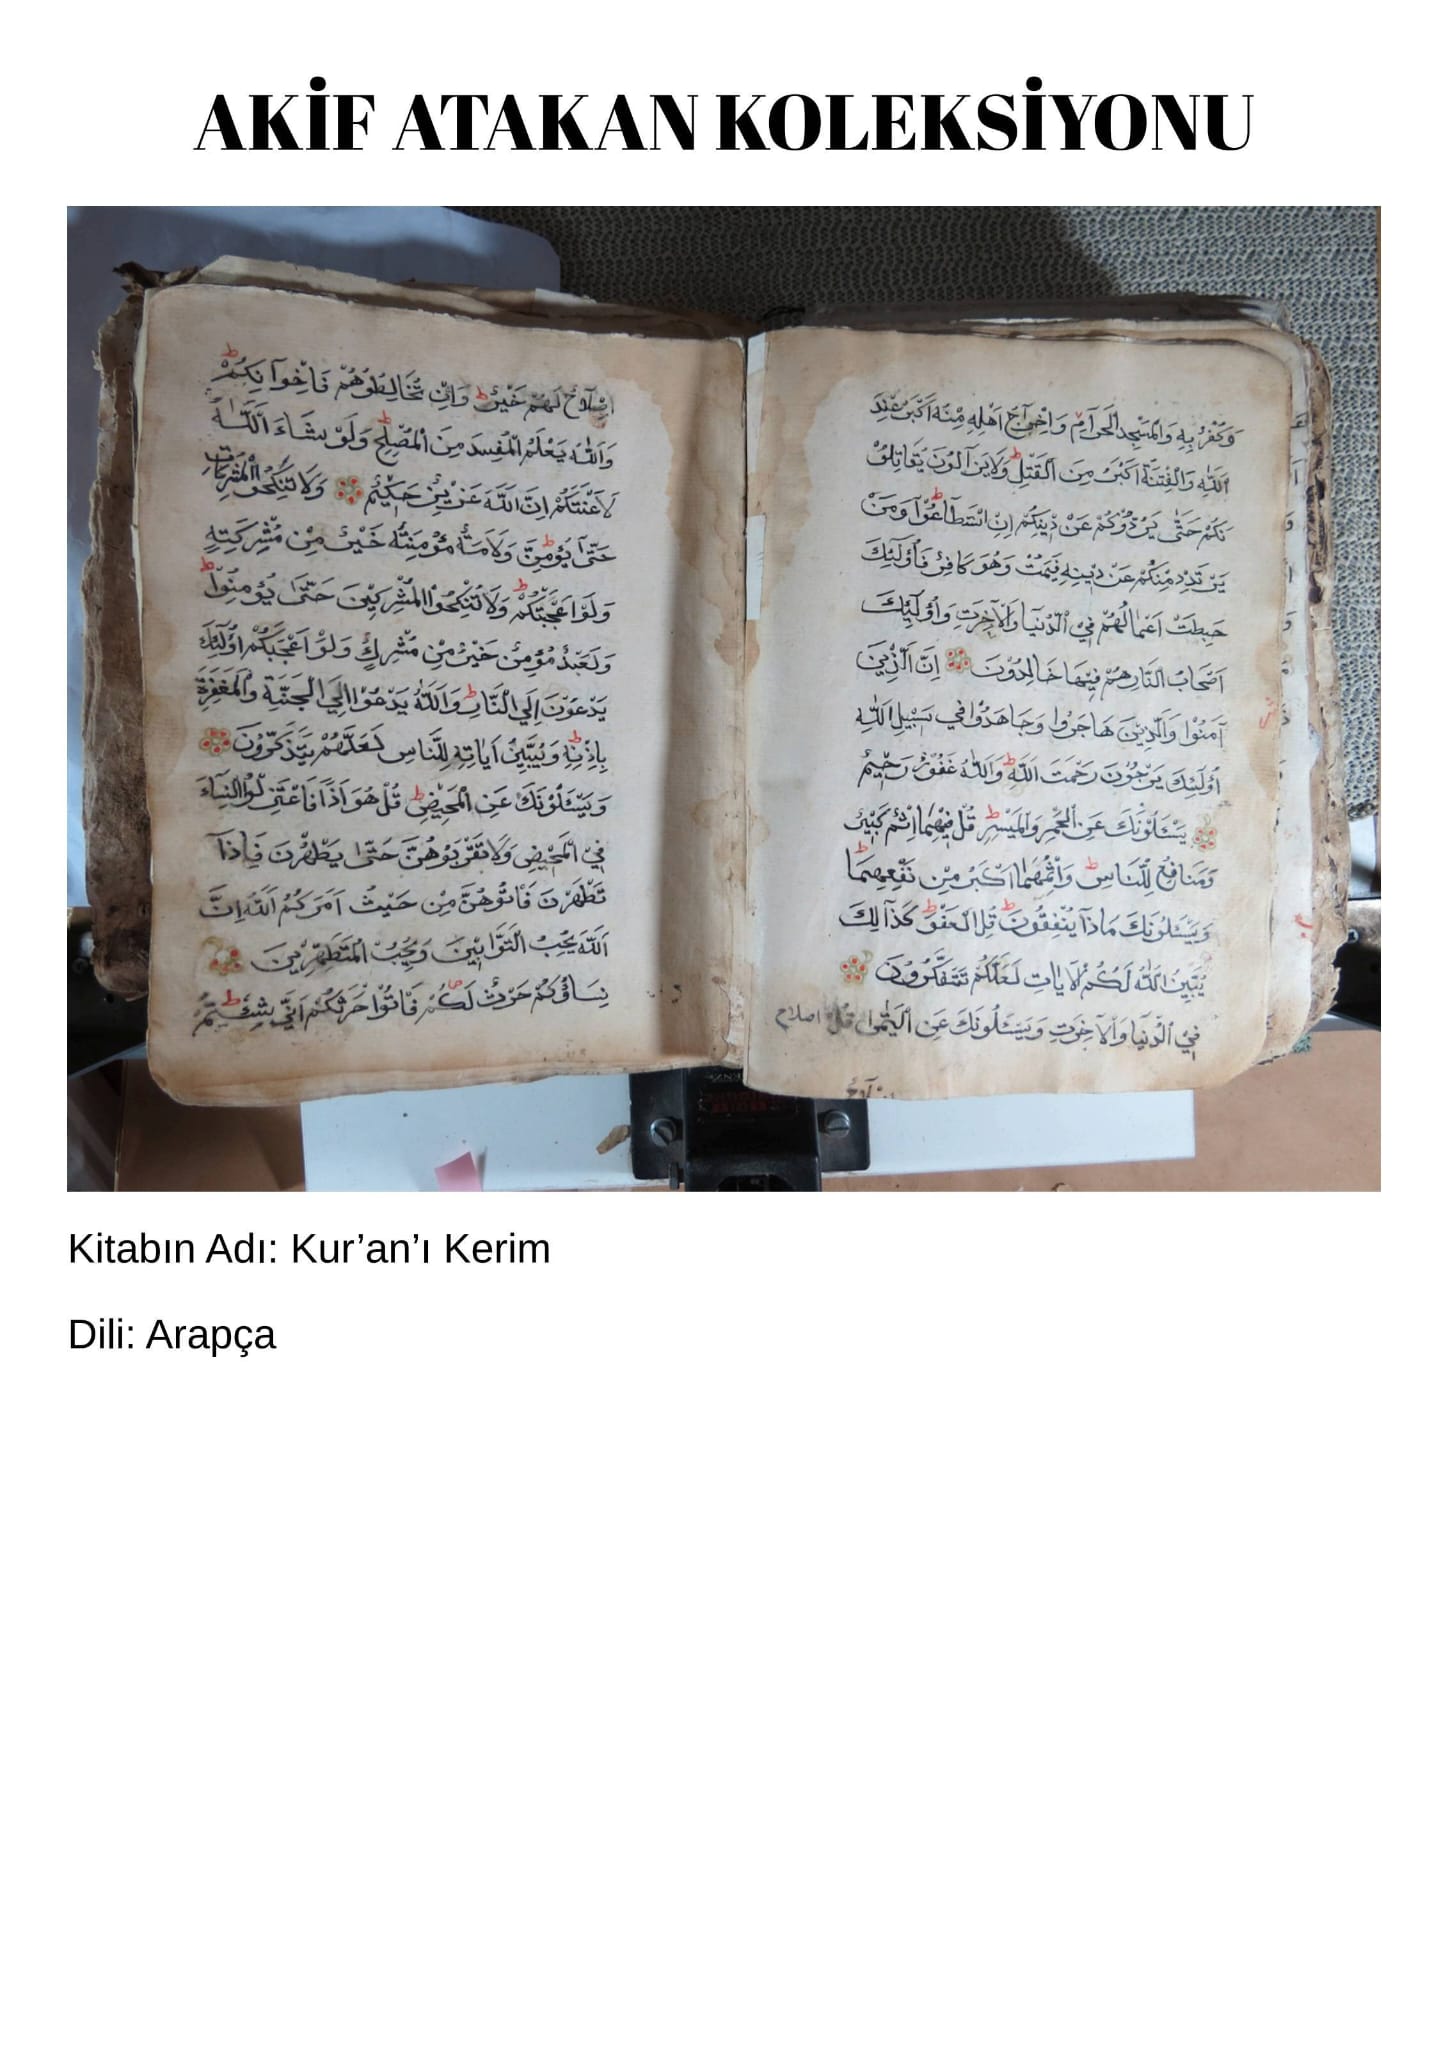 AKİF ATAKAN KOLEKSİYONU
وَكُفْرٌ بِهِ وَالْمَسْجِدِ الْحَرَامِ وَاِخْرَاجُ اَهْلِهِ مِنْهُ اَكْبَرُ عِنْدَ
اللّٰهِ وَالْفِتْنَةُ اَكْبَرُ مِنَ الْقَتْلِ ط وَلَا يَزَالُونَ يُقَاتِلُو
نَكُمْ حَتّٰى يَرُدُّوكُمْ عَنْ دِينِكُمْ اِنِ اسْتَطَاعُوا ط وَمَنْ
يَرْتَدِدْ مِنْكُمْ عَنْ دِينِهِ فَيَمُتْ وَهُوَ كَافِرٌ فَاُولٰئِكَ
حَبِطَتْ اَعْمَالُهُمْ فِي الدُّنْيَا وَالْاٰخِرَتِ وَاُولٰئِكَ
اَصْحَابُ النَّارِ هُمْ فِيهَا خَالِدُونَ اِنَّ الَّذِينَ
آمَنُوا وَالَّذِينَ هَاجَرُوا وَجَاهَدُوا فِي سَبِيلِ اللّٰهِ
اُولٰئِكَ يَرْجُونَ رَحْمَتَ اللّٰهِ ط وَاللّٰهُ غَفُورٌ رَحِيمٌ
يَسْئَلُونَكَ عَنِ الْخَمْرِ وَالْمَيْسِرِ ط قُلْ فِيهِمَا اِثْمٌ كَبِيرٌ
وَمَنَافِعُ لِلنَّاسِ ط وَاِثْمُهُمَا اَكْبَرُ مِنْ نَفْعِهِمَا ط
وَيَسْئَلُونَكَ مَاذَا يُنْفِقُونَ ط قُلِ الْعَفْوَ ط كَذَالِكَ
يُبَيِّنُ اللّٰهُ لَكُمُ الْاٰيَاتِ لَعَلَّكُمْ تَتَفَكَّرُونَ
فِي الدُّنْيَا وَالْاٰخِرَتِ وَيَسْئَلُونَكَ عَنِ الْيَتٰمٰى قُلْ اصلاح
اِصْلَاحٌ لَهُمْ خَيْرٌ ط وَاِنْ تُخَالِطُوهُمْ فَاِخْوَانُكُمْ ط
وَاللّٰهُ يَعْلَمُ الْمُفْسِدَ مِنَ الْمُصْلِحِ ط وَلَوْ شَاءَ اللّٰهُ
لَاَعْنَتَكُمْ اِنَّ اللّٰهَ عَزِيزٌ حَكِيمٌ وَلَا تَنْكِحُوا الْمُشْرِكَاتِ
حَتّٰى يُؤْمِنَّ ط وَلَاَمَةٌ مُؤْمِنَةٌ خَيْرٌ مِنْ مُشْرِكَةٍ
وَلَوْ اَعْجَبَتْكُمْ ط وَلَا تُنْكِحُوا الْمُشْرِكِينَ حَتّٰى يُؤْمِنُوا ط
وَلَعَبْدٌ مُؤْمِنٌ خَيْرٌ مِنْ مُشْرِكٍ وَلَوْ اَعْجَبَكُمْ اُولٰئِكَ
يَدْعُونَ اِلَى النَّارِ ط وَاللّٰهُ يَدْعُوا اِلَى الْجَنَّةِ وَالْمَغْفِرَةِ
بِاِذْنِهِ ط وَيُبَيِّنُ اٰيَاتِهِ لِلنَّاسِ لَعَلَّهُمْ يَتَذَكَّرُونَ
وَيَسْئَلُونَكَ عَنِ الْمَحِيضِ ط قُلْ هُوَ اَذًا فَاعْتَزِلُوا النِّسَاءَ
فِي الْمَحِيضِ وَلَا تَقْرَبُوهُنَّ حَتّٰى يَطْهُرْنَ فَاِذَا
تَطَهَّرْنَ فَاْتُوهُنَّ مِنْ حَيْثُ اَمَرَكُمُ اللّٰهُ اِنَّ
اللّٰهَ يُحِبُّ التَّوَّابِينَ وَيُحِبُّ الْمُتَطَهِّرِينَ
نِسَاؤُكُمْ حَرْثٌ لَكُمْ فَاْتُوا حَرْثَكُمْ اَنّٰى شِئْتُمْ ط
Kitabın Adı: Kur’an’ı Kerim
Dili: Arapça